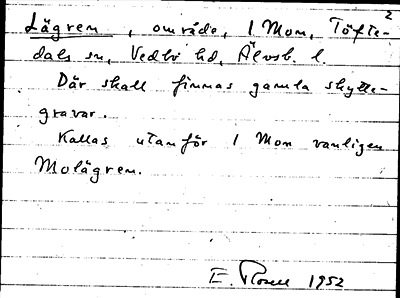 2
Lägren, område, 1 Mon, Töfte-
dals sn, Vedbo hd, Älvsb. l.
Där skall finnas gamla skytte-
gravar.
Kallas utanför 1 Mon vanligen
Molägren.
E. Rosell 1952